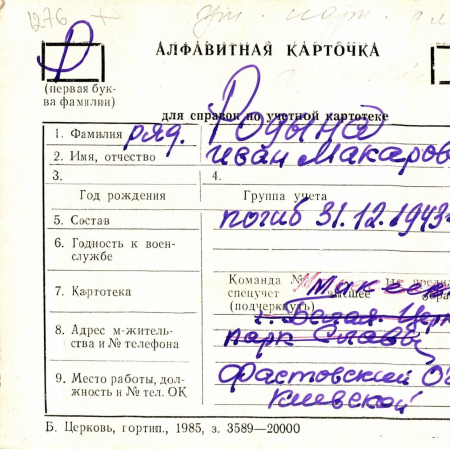 1276
Р
АЛФАВИТНАЯ КАРТОЧКА
(первая бук-
ва фамилии)
для справок по учетной картотеке
1. Фамилия ряд. Родына
2. Имя, отчество Иван Макаров
3. 4.
Год рождения Группа учета
5. Состав погиб 31.12.1943
6. Годность к воен-
службе
Команда №
7. Картотека спецучет
(подчеркнуть)
г. Белая Церк
8. Адрес м-житель-
ства и № телефона парк Славы
Фастовский
9. Место работы, дол-
жность и № тел. ОК Киевской
Б. Церковь, гортип., 1985, з. 3589—20000